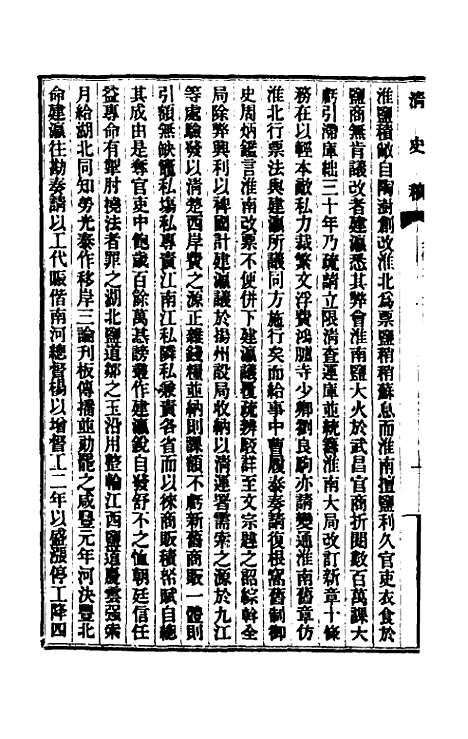 清史稿
淮鹽積敝自陶澍創改淮北為票鹽稍稍蘇息而淮南擅鹽利久官吏衣食於
鹽商無肯議改者建瀛悉其弊會淮南鹽大火於武昌官商折閱數百萬課大
虧引滯庫絀三十年乃疏請立限清查運庫並統籌淮南大局改訂新章十條
務在以輕本敵私力裁繁文浮費鴻臚寺少卿劉良駒亦請變通淮南舊章仿
淮北行票法與建瀛所議同方施行矣而給事中曹履泰奏請復根窩舊制御
史周炳鑑言淮南改票不便併下建瀛議覆疏辨駁詳至文宗韙之詔綜幹全
局除弊興利以裨國計建瀛議於揚州設局收納以清運署需索之源於九江
等處驗發以清楚西岸費之源正雜錢糧並納則課額不虧新舊商販一體則
引額無缺艖私場私專責江南江私鄰私兼責各省而以徠商販積帑賦自總
其成由是奪官吏中飽歲百餘萬基謗叢作建瀛銳自發舒不之恤朝廷信任
益專命有掣肘撓法者罪之湖北鹽道鄒之玉沿用整輪江西鹽道慶雲強索
月給湖北同知勞光泰作移岸三論刊板傳播並劾罷之咸豐元年河決豐北
命建瀛往勘奏請以工代賑偕南河總督楊以增督工二年以盛漲停工降四